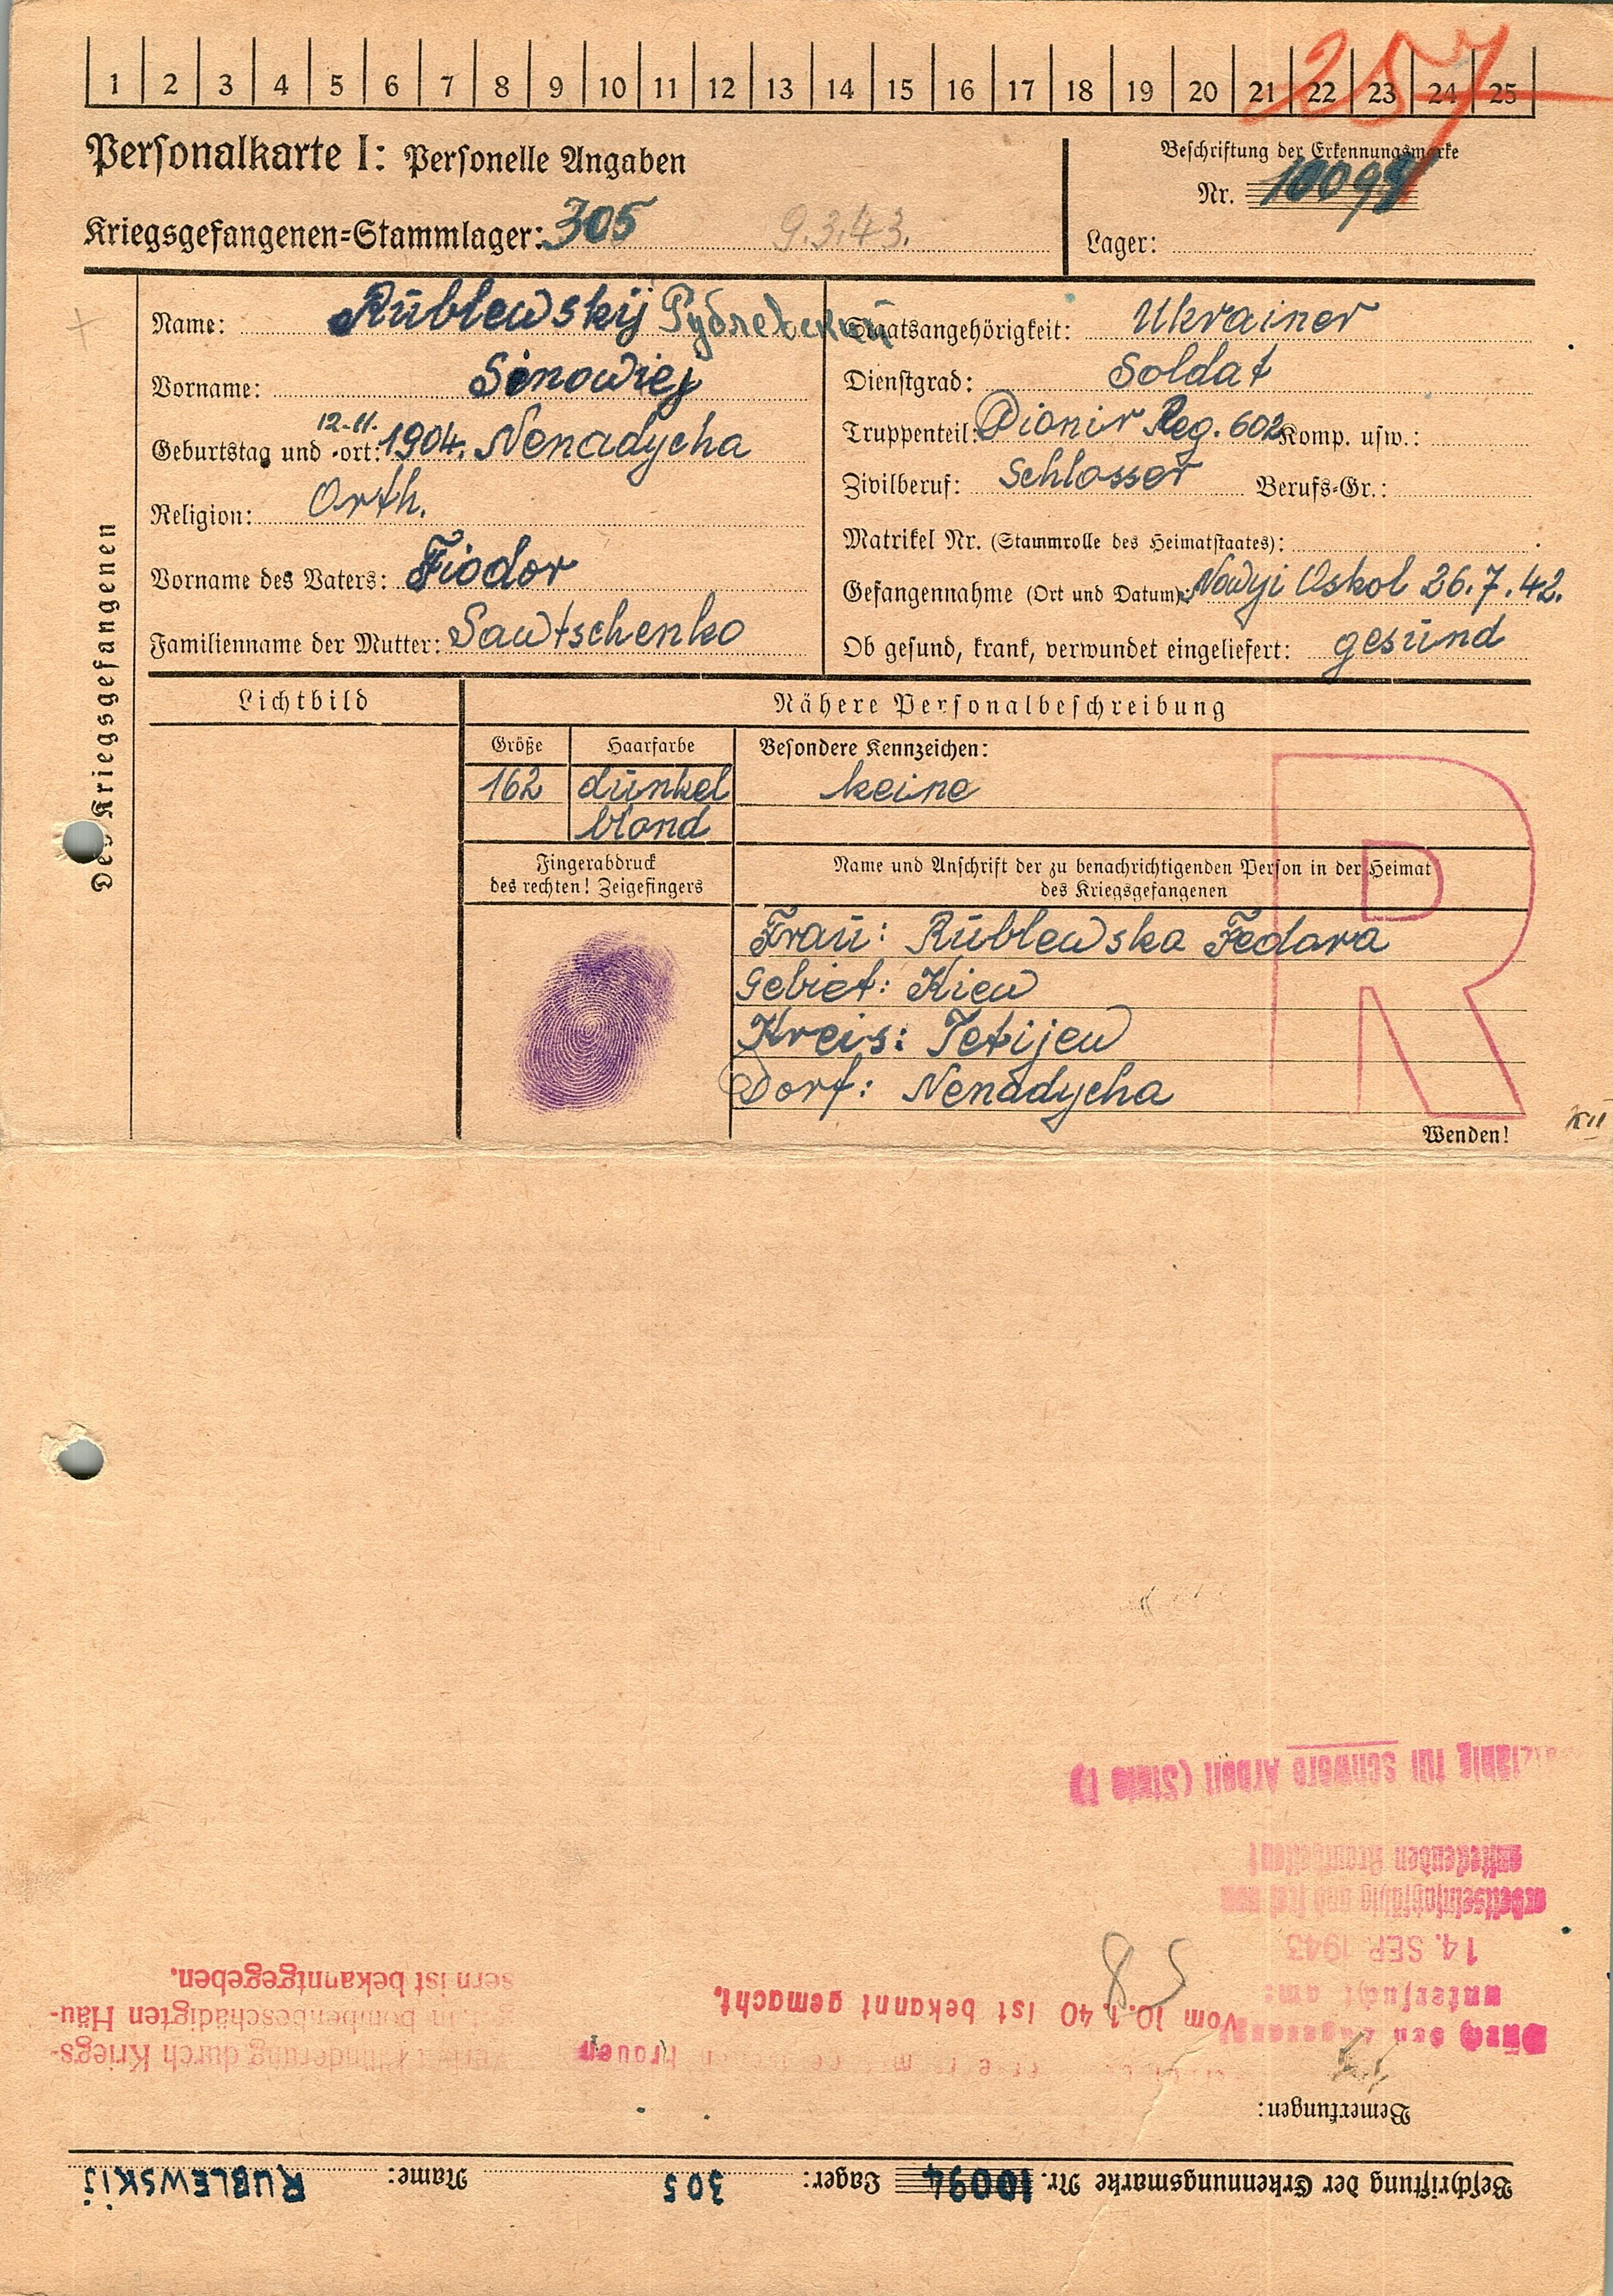 1 2 3 4 5 6 7 8 9 10 11 12 13 14 15 16 17 18 19 20 21 22 23 24 25
257
Personalkarte I: Personelle Angaben
Beschriftung der Erkennungsmarke
Nr. 10094
Kriegsgefangenen-Stammlager: 305 9.3.43.
Lager:
Des Kriegsgefangenen
Name: Rublewskij Рублевский
Vorname: Sinowiej
Geburtstag und -ort: 12.11. 1904. Nenadycha
Religion: Orth.
Vorname des Vaters: Fiodor
Familienname der Mutter: Sawtschenko
Staatsangehörigkeit: Ukrainer
Dienstgrad: Soldat
Truppenteil: Pionir Reg. 602 Komp. usw.:
Zivilberuf: Schlosser Berufs-Gr.:
Matrikel Nr. (Stammrolle des Heimatstaates):
Gefangennahme (Ort und Datum): Nowyi Oskol 26.7.42.
Ob gesund, krank, verwundet eingeliefert: gesund
Lichtbild
Nähere Personalbeschreibung
Größe
162
Haarfarbe
dunkel
blond
Besondere Kennzeichen:
keine
Fingerabdruck
des rechten! Zeigefingers
Name und Anschrift der zu benachrichtigenden Person in der Heimat
des Kriegsgefangenen
Frau: Rublewska Fedora
Gebiet: Kiew
Kreis: Tetijew
Dorf: Nenadycha
R
Wenden!
KII
Beschriftung der Erkennungsmarke Nr. 10094 Lager: 305 Name: RUBLEWSKIJ
Bemerkungen:
Durch den Lagerarzt
untersucht am:
14. SEP. 1943
arbeitseinsatzfähig und frei von
ansteckenden Krankheiten!
für schwere Arbeit (Stufe I)
Frauen
vom 10.1.40 ist bekannt gemacht.
85
Plünderung durch Kriegs-
in bombenbeschädigten Häu-
sern ist bekanntgegeben.